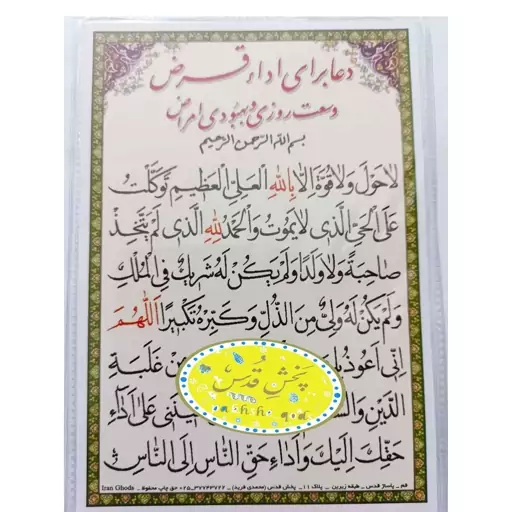 دعا برای اداء قرض
وسعت روزی و بهبودی امراض
بسم الله الرحمن الرحیم
لاحَوْلَ وَلا قُوَّةَ اِلّا بِاللهِ الْعَلِیِّ الْعَظیمِ تَوَکَّلْتُ
عَلَی الْحَیِّ الَّذی لا یَمُوتُ وَالْحَمْدُ لِلّهِ الَّذی لَمْ یَتَّخِذْ
صاحِبَةً وَلا وَلَداً وَلَمْ یَکُنْ لَهُ شَریکٌ فِی الْمُلْکِ
وَلَمْ یَکُنْ لَهُ وَلِیٌّ مِنَ الذُّلِّ وَکَبِّرْهُ تَکْبیراً اَللّهُمَّ
اِنّی اَعُوذُ غَلَبَةِ
الدَّیْنِ عَلی اَداءِ
حَقِّکَ اِلَیْکَ وَاَداءِ حَقِّ النّاسِ اِلَی النّاسِ
پخش قُدس
قم _ پاساژ قدس _ طبقه زیرین _ پلاک ۱۱ _ پخش قدس (محمدی فرید) _ ۳۷۷۴۳۷۲۲-۰۲۵ حق چاپ محفوظ _ Iran Ghods